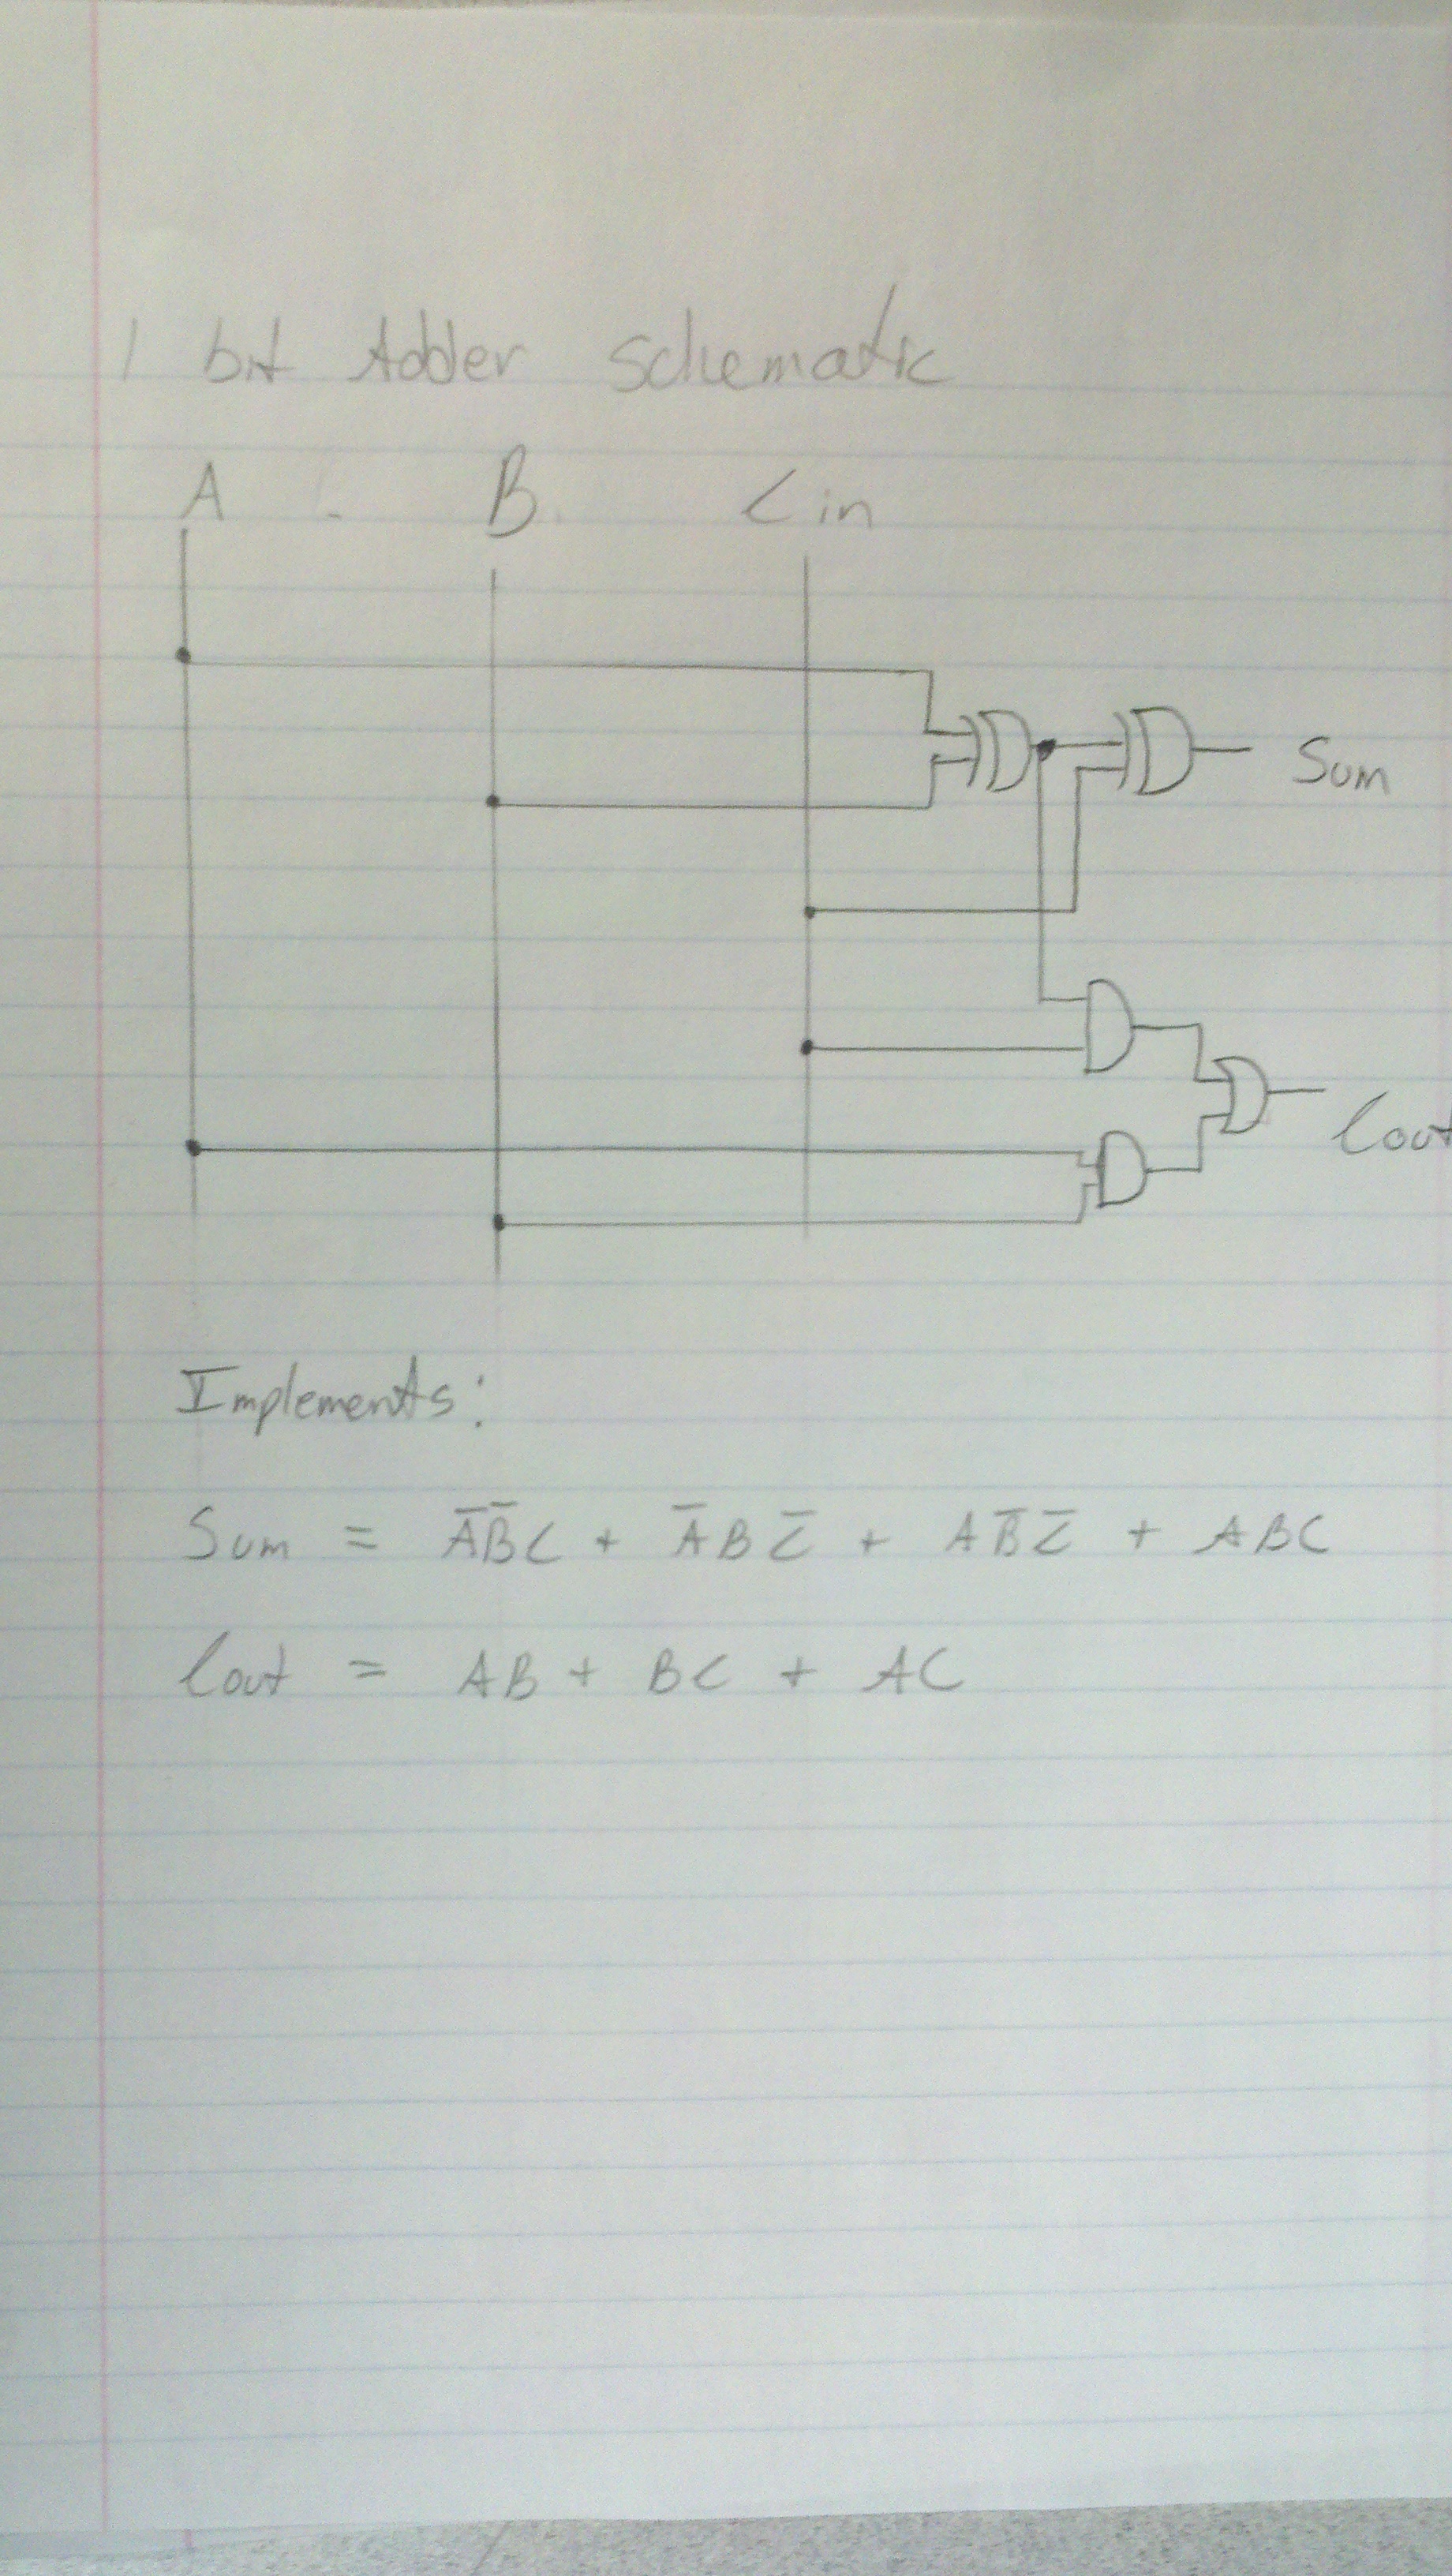 1 bit Adder Schematic
A B Cin
Sum
Cout
Implements:
Sum = A̅B̅C + A̅BC̅ + AB̅C̅ + ABC
Cout = AB + BC + AC